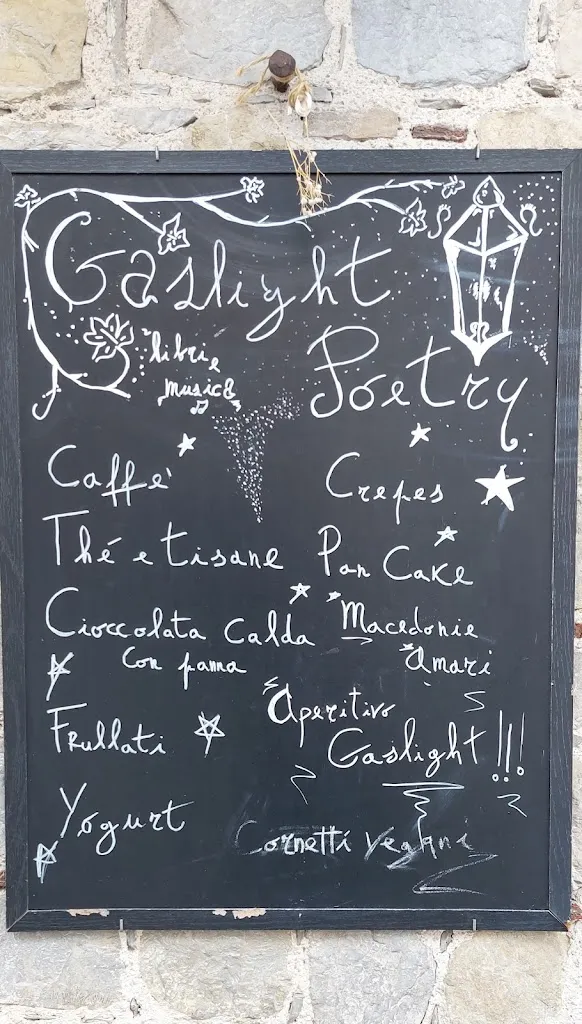 Gaslight
Poetry
libri e
musica
Caffe'
Thé e tisane
Cioccolata Calda
Con panna
Frullati
Yogurt
Crepes
Pan Cake
Macedonie
Amari
Aperitivo
Gaslight!!!
Cornetti vegani